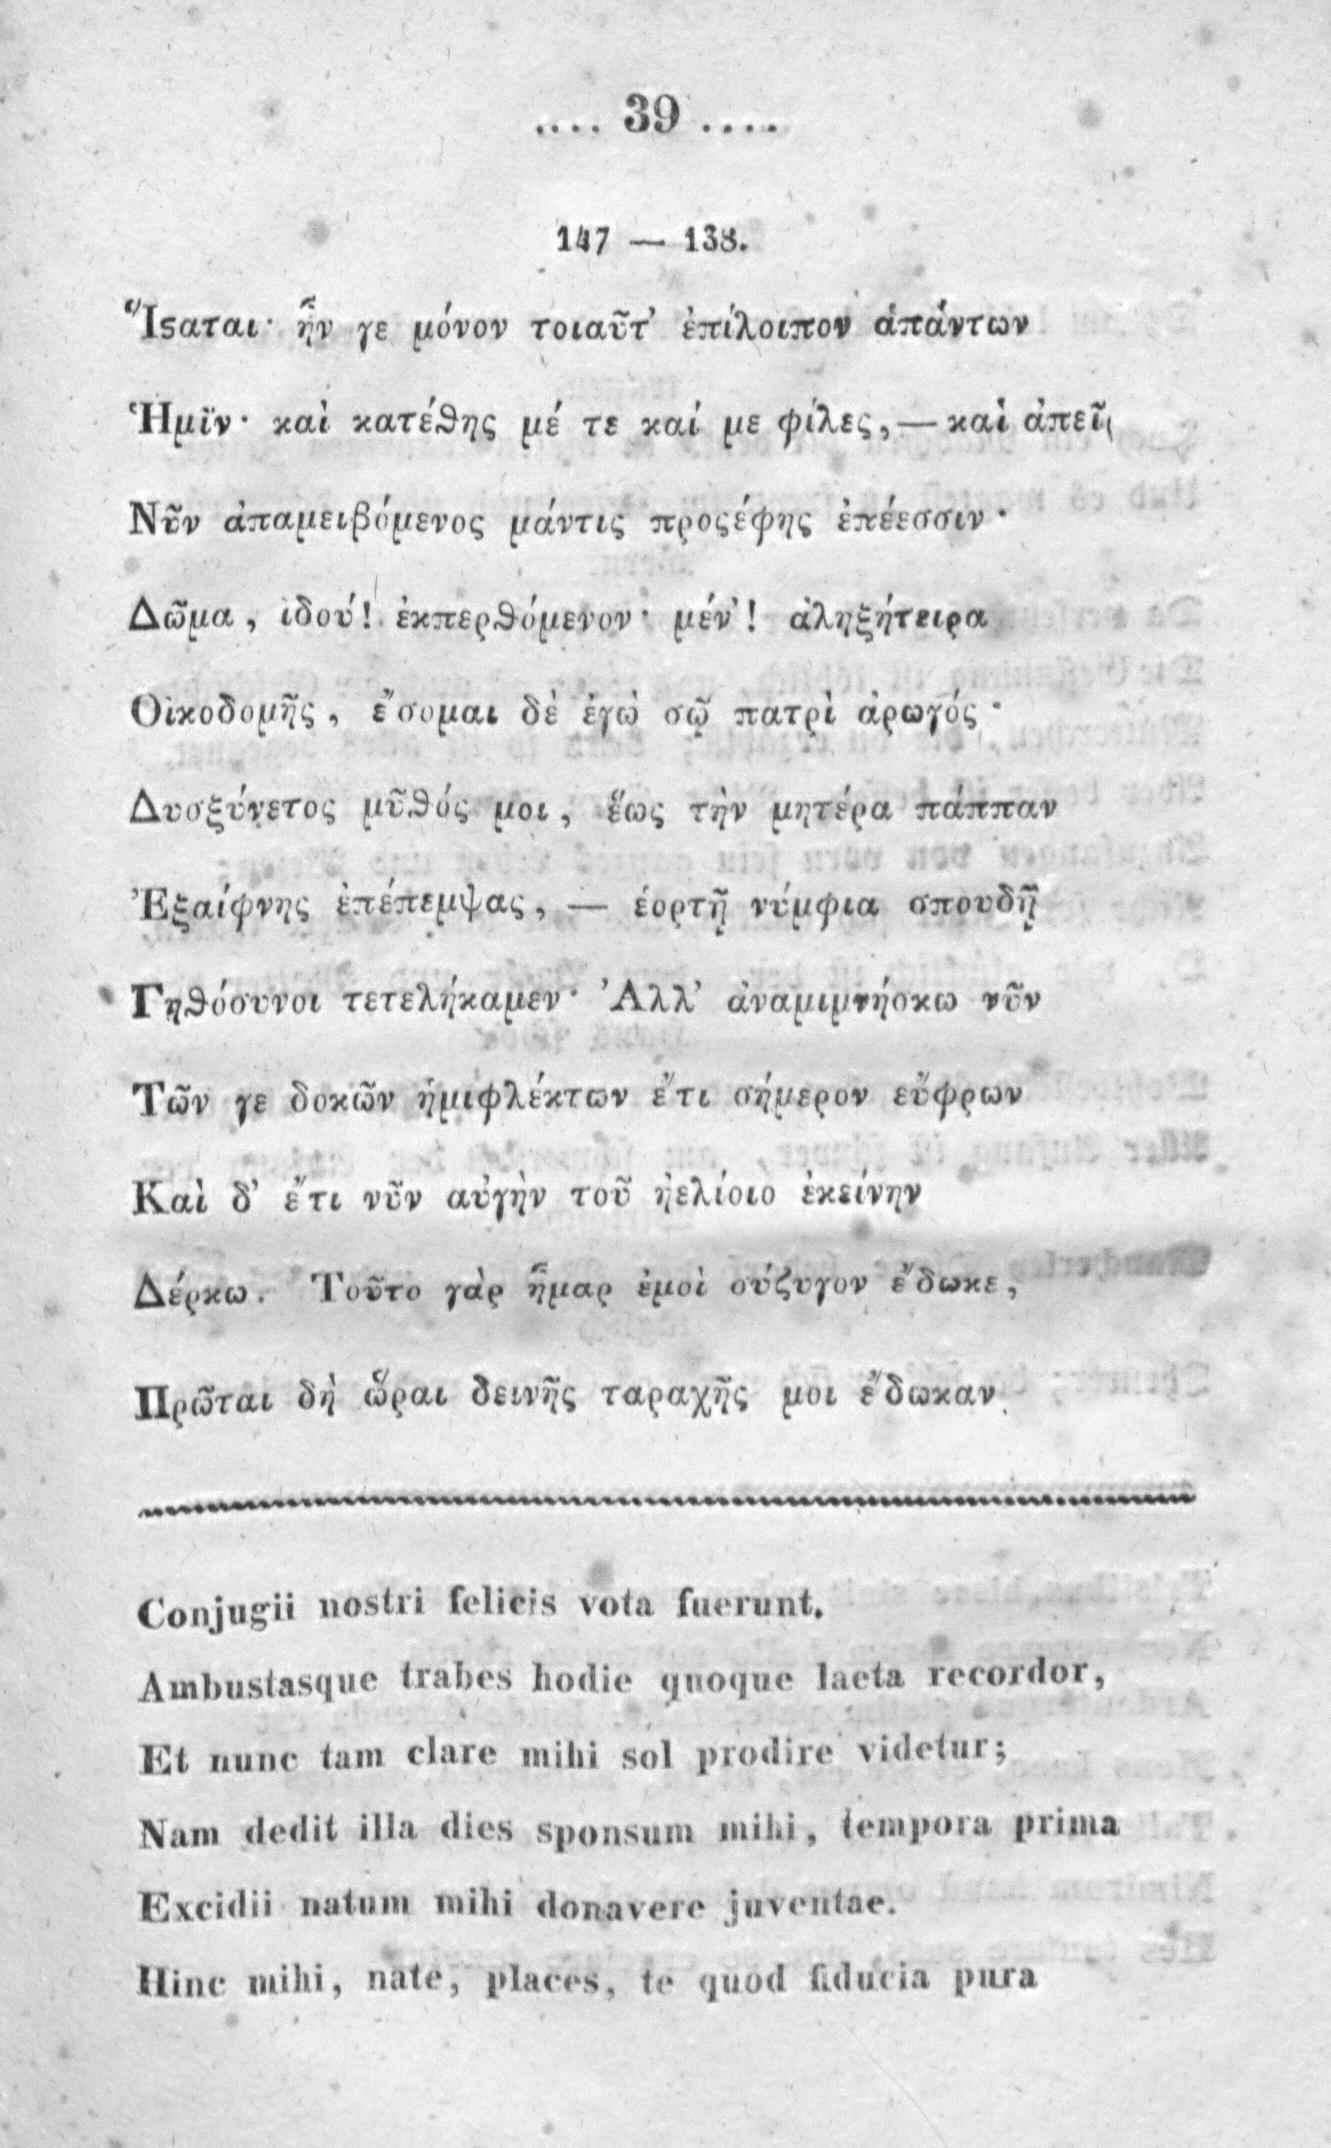 .... 39 ....
147 — 138.
Ἵϛαται· ἦν γε μόνον τοιαῦτ' ἐπίλοιπον ἁπάντων
Ἡμῖν· καὶ κατέθης μέ τε καί με φίλες, — καὶ ἀπεῖ,
Νῦν ἀπαμειβόμενος μάντις προςέφης ἐπέεσσιν·
Δῶμα, ἰδού! ἐκπερθόμενον· μέν'! ἀληξήτειρα
Οἰκοδομῆς, ἔσομαι δὲ ἐγὼ σῷ πατρὶ ἀρωγός·
Δυσξύνετος μῦθός μοι, ἕως τὴν μητέρα πάππαν
Ἐξαίφνης ἐπέπεμψας, — ἑορτῇ νύμφια σπουδῇ
Γηθόσυνοι τετελήκαμεν· Ἀλλ' ἀναμιμνήσκω νῦν
Τῶν γε δοκῶν ἡμιφλέκτων ἔτι σήμερον εὔφρων
Καὶ δ' ἔτι νῦν αὐγὴν τοῦ ἠελίοιο ἐκείνην
Δέρκω. Τοῦτο γὰρ ἦμαρ ἐμοὶ σύζυγον ἔδωκε,
Πρῶται δὴ ὧραι δεινῆς ταραχῆς μοι ἔδωκαν
Conjugii nostri felicis vota fuerunt.
Ambustasque trabes hodie quoque laeta recordor,
Et nunc tam clare mihi sol prodire videtur;
Nam dedit illa dies sponsum mihi, tempora prima
Excidii natum mihi donavere juventae.
Hinc mihi, nate, places, te quod fiducia pura